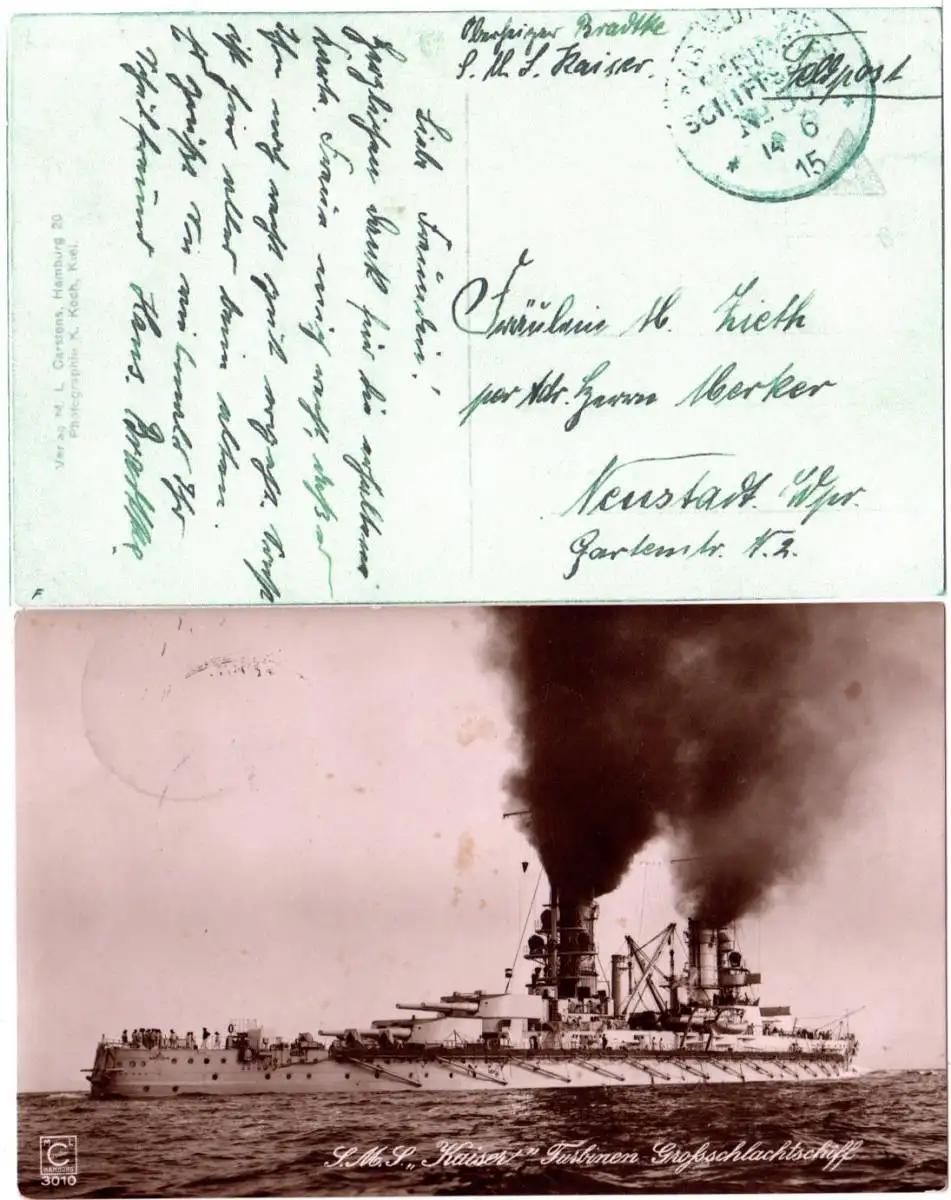 Oberheizer Bradtke
S. M. S. Kaiser.
Feldpost
SCHIFFSPOST
No
14 6
15
Fräulein M. Zieth
per Adr. Herrn Merker
Neustadt. Wpr.
Gartenstr. N. 2.
Liebe Freundin!
Herzlichen Dank für die erhaltene
Karte. Freue mich
Ihn noch recht gut
ist hier alles beim alten.
Es grüßt Sie Ihr
Hans. Bradtke
Verlag M. L. Carstens, Hamburg 20
Photographie K. Koch, Kiel.
F
S.M.S. „Kaiser" Turbinen Grossschlachtschiff
M L
C
HAMBURG
3010